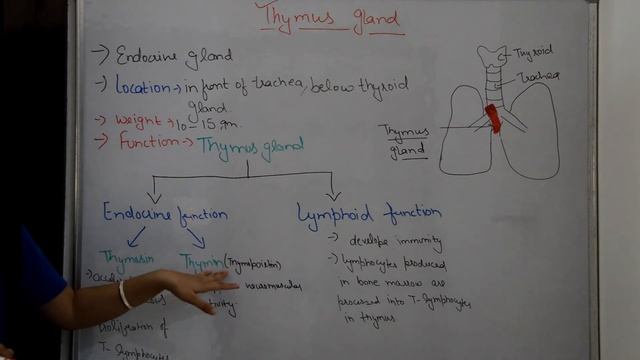 Thymus gland
-) Endocrine gland
-) Location → in front of trachea, below thyroid
gland.
-) Weight → 10-15 gm.
-) Function → Thymus gland
Endocrine function
Thymosin
Thymin (Thymopoietin)
neuromuscular
proliferation of
T-lymphocytes
Lymphoid function
-) develope immunity
-) Lymphocytes produced
in bone marrow are
processed into T-lymphocytes
in thymus
Thyroid
Trachea
Thymus
gland